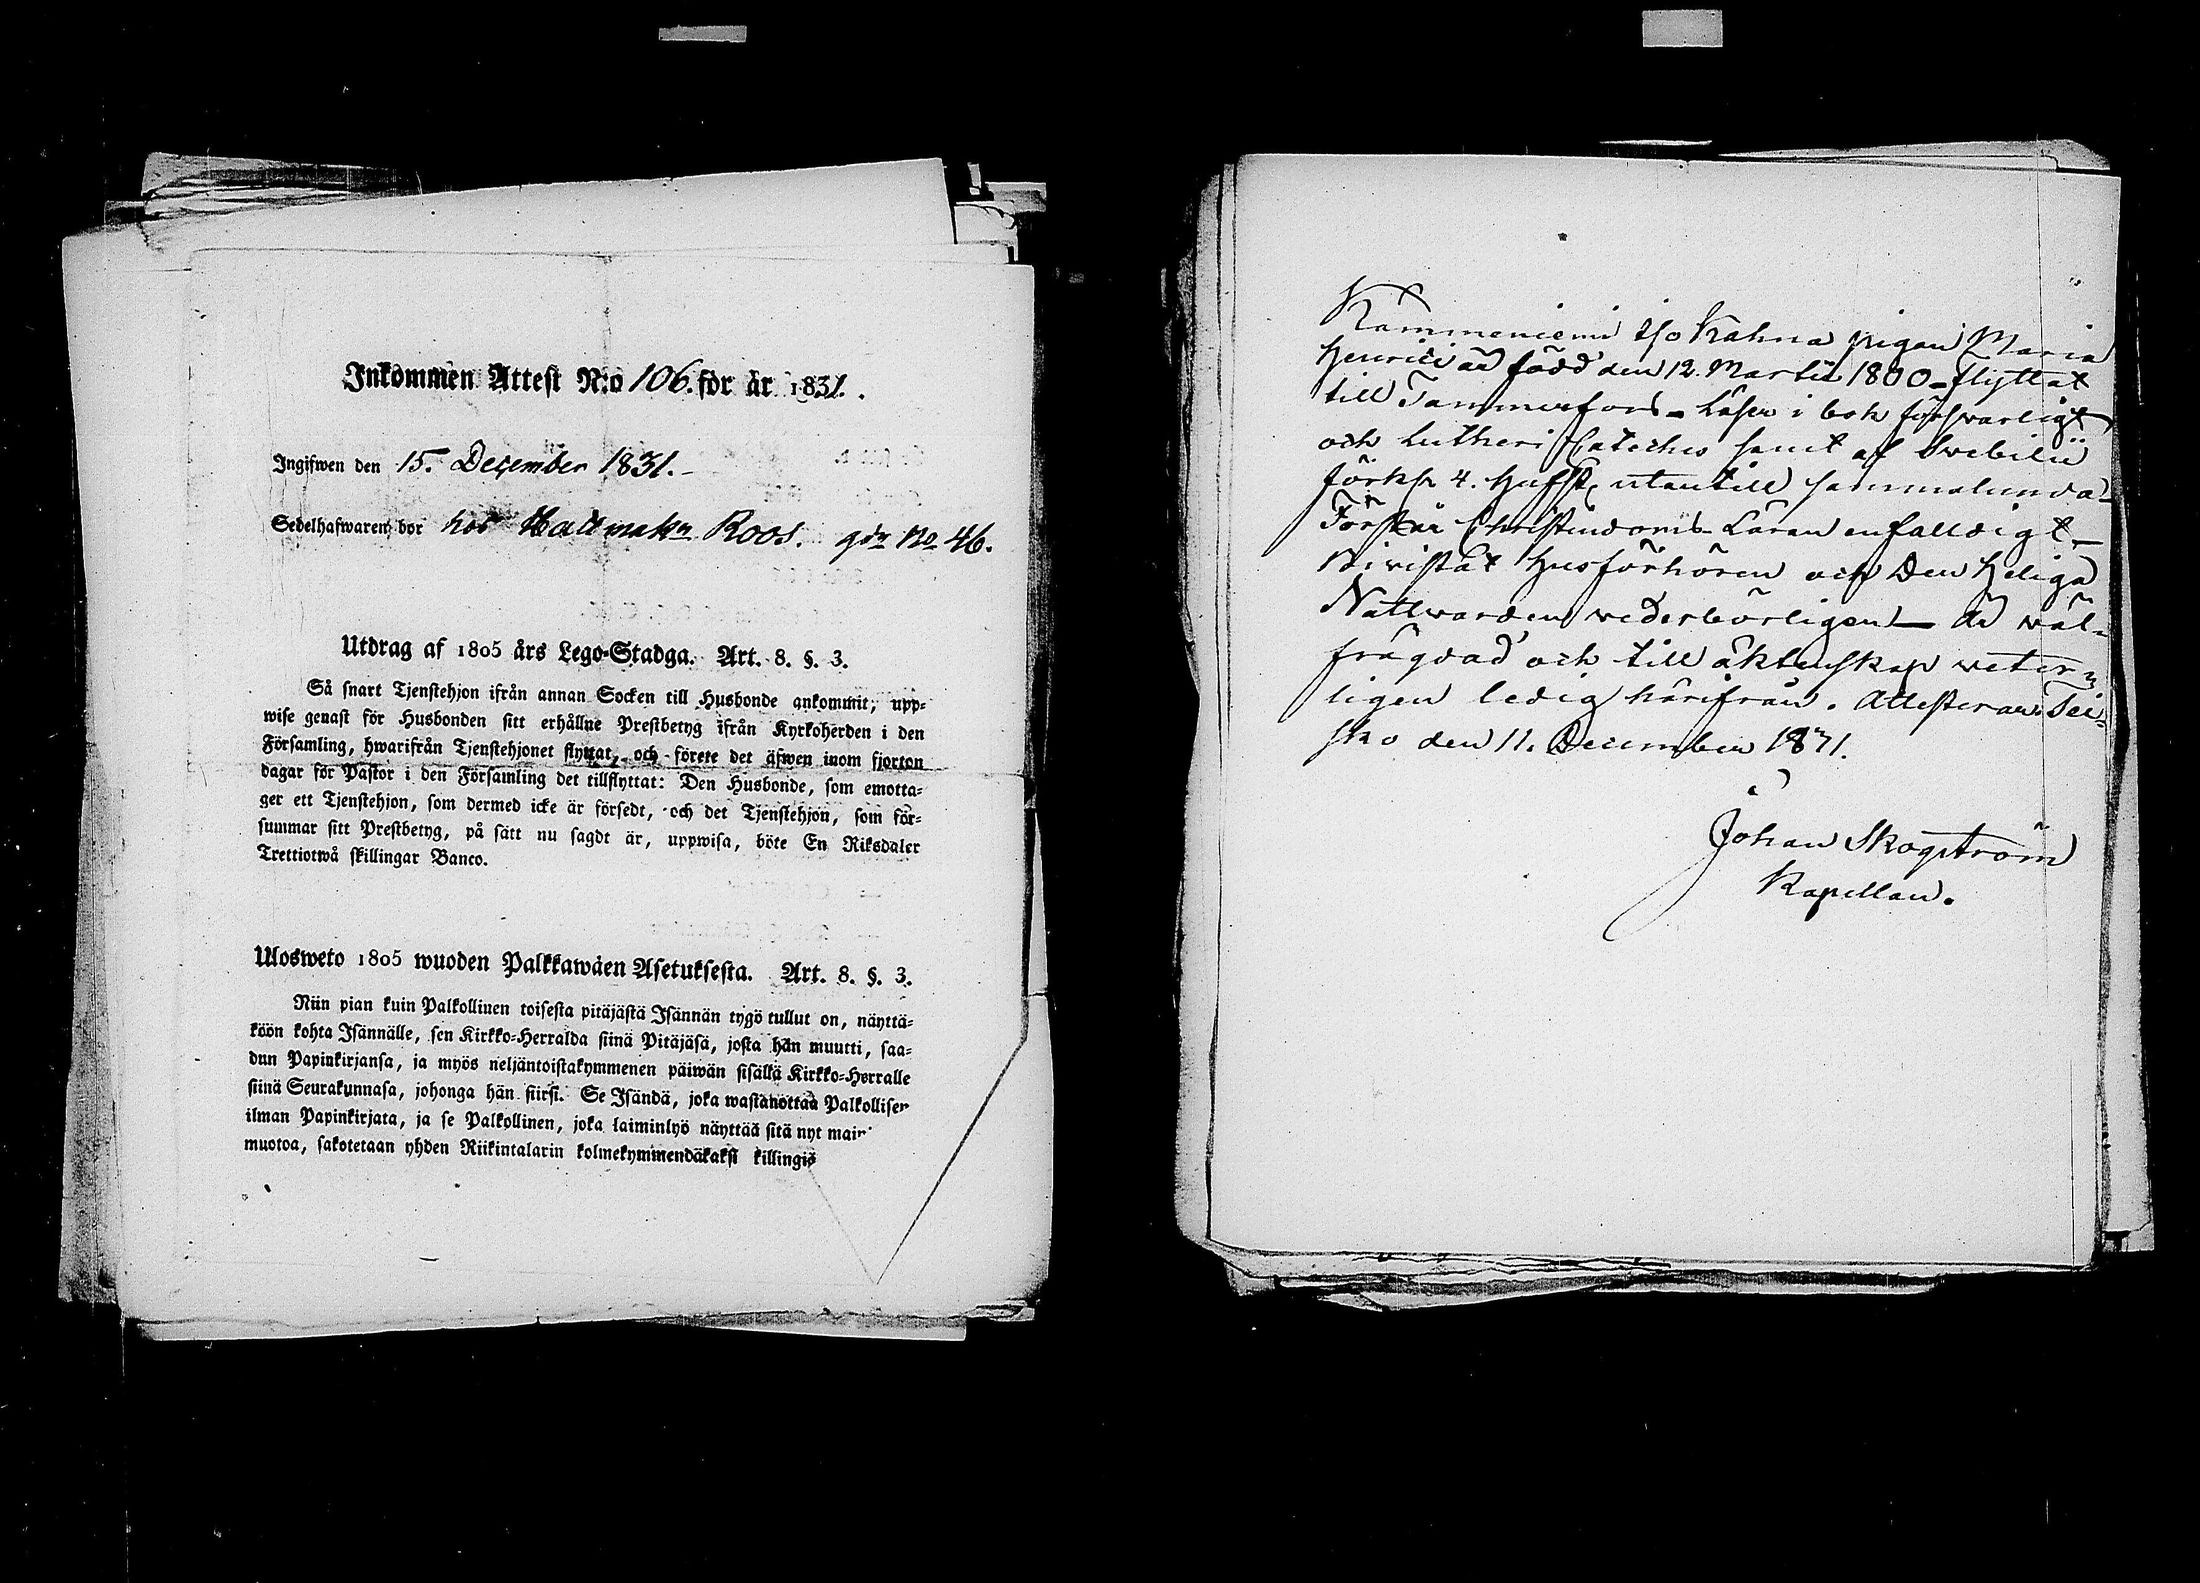 Inkommen Attest N:o 106. för år 1831.
Ingifwen den 15. December 1831.
Sedelhafwaren bor hos Hattmakn Roos. gdn No 46.
Utdrag af 1805 års Lego-Stadga. Art. 8. §. 3.
Så snart Tjenstehjon ifrån annan Socken till Husbonde ankommit, upp-
wise genast för Husbonden sitt erhållne Prestbetyg ifrån Kyrkoherden i den
Församling, hwarifrån Tjenstehjonet flyttat, och förete det äfwen inom fjorton
dagar för Pastor i den Församling det tillflyttat: Den Husbonde, som emotta-
ger ett Tjenstehjon, som dermed icke är försedt, och det Tjenstehjon, som för-
summar sitt Prestbetyg, på sätt nu sagdt är, uppwisa, böte En Riksdaler
Trettiotwå skillingar Banco.
Ulosweto 1805 wuoden Palkkawäen Asetuksesta. Art. 8. §. 3.
Niin pian kuin Palkollinen toisesta pitäjästä Isännän tygö tullut on, näyttä-
köön kohta Isännälle, sen Kirkko-Herralda siinä Pitäjäsä, josta hän muutti, saa-
dun Papinkirjansa, ja myös neljäntoistakymmenen päiwän sisällä Kirkko-Herralle
siinä Seurakunnasa, johonga hän siirsi. Se Isändä, joka wastanottaa Palkollisen
ilman Papinkirjata, ja se Palkollinen, joka laiminlyö näyttää sitä nyt main
muotoa, sakotetaan yhden Riikintalarin kolmekymmendäkaksi killingis
Kämmeniemi Kahra pigan Maria
Henrici född den 12. Martii 1800 - flyttat
till Tammerfors - Läser i bok försvarligt
och Lutheri Cateches samt af Swebilii
förkl. 4. Hufst. utantill sammalunda -
Förstår Christendoms Läran enfaldigt -
Bivistat Husförhören och Den Heliga
Nattwarden vederbörligen - Är wäl-
frägdad och till äktenskap veter-
ligen ledig härifrån. Attesterar. Tei-
sko den 11. December 1831.
Johan Skogström
Kapellan.